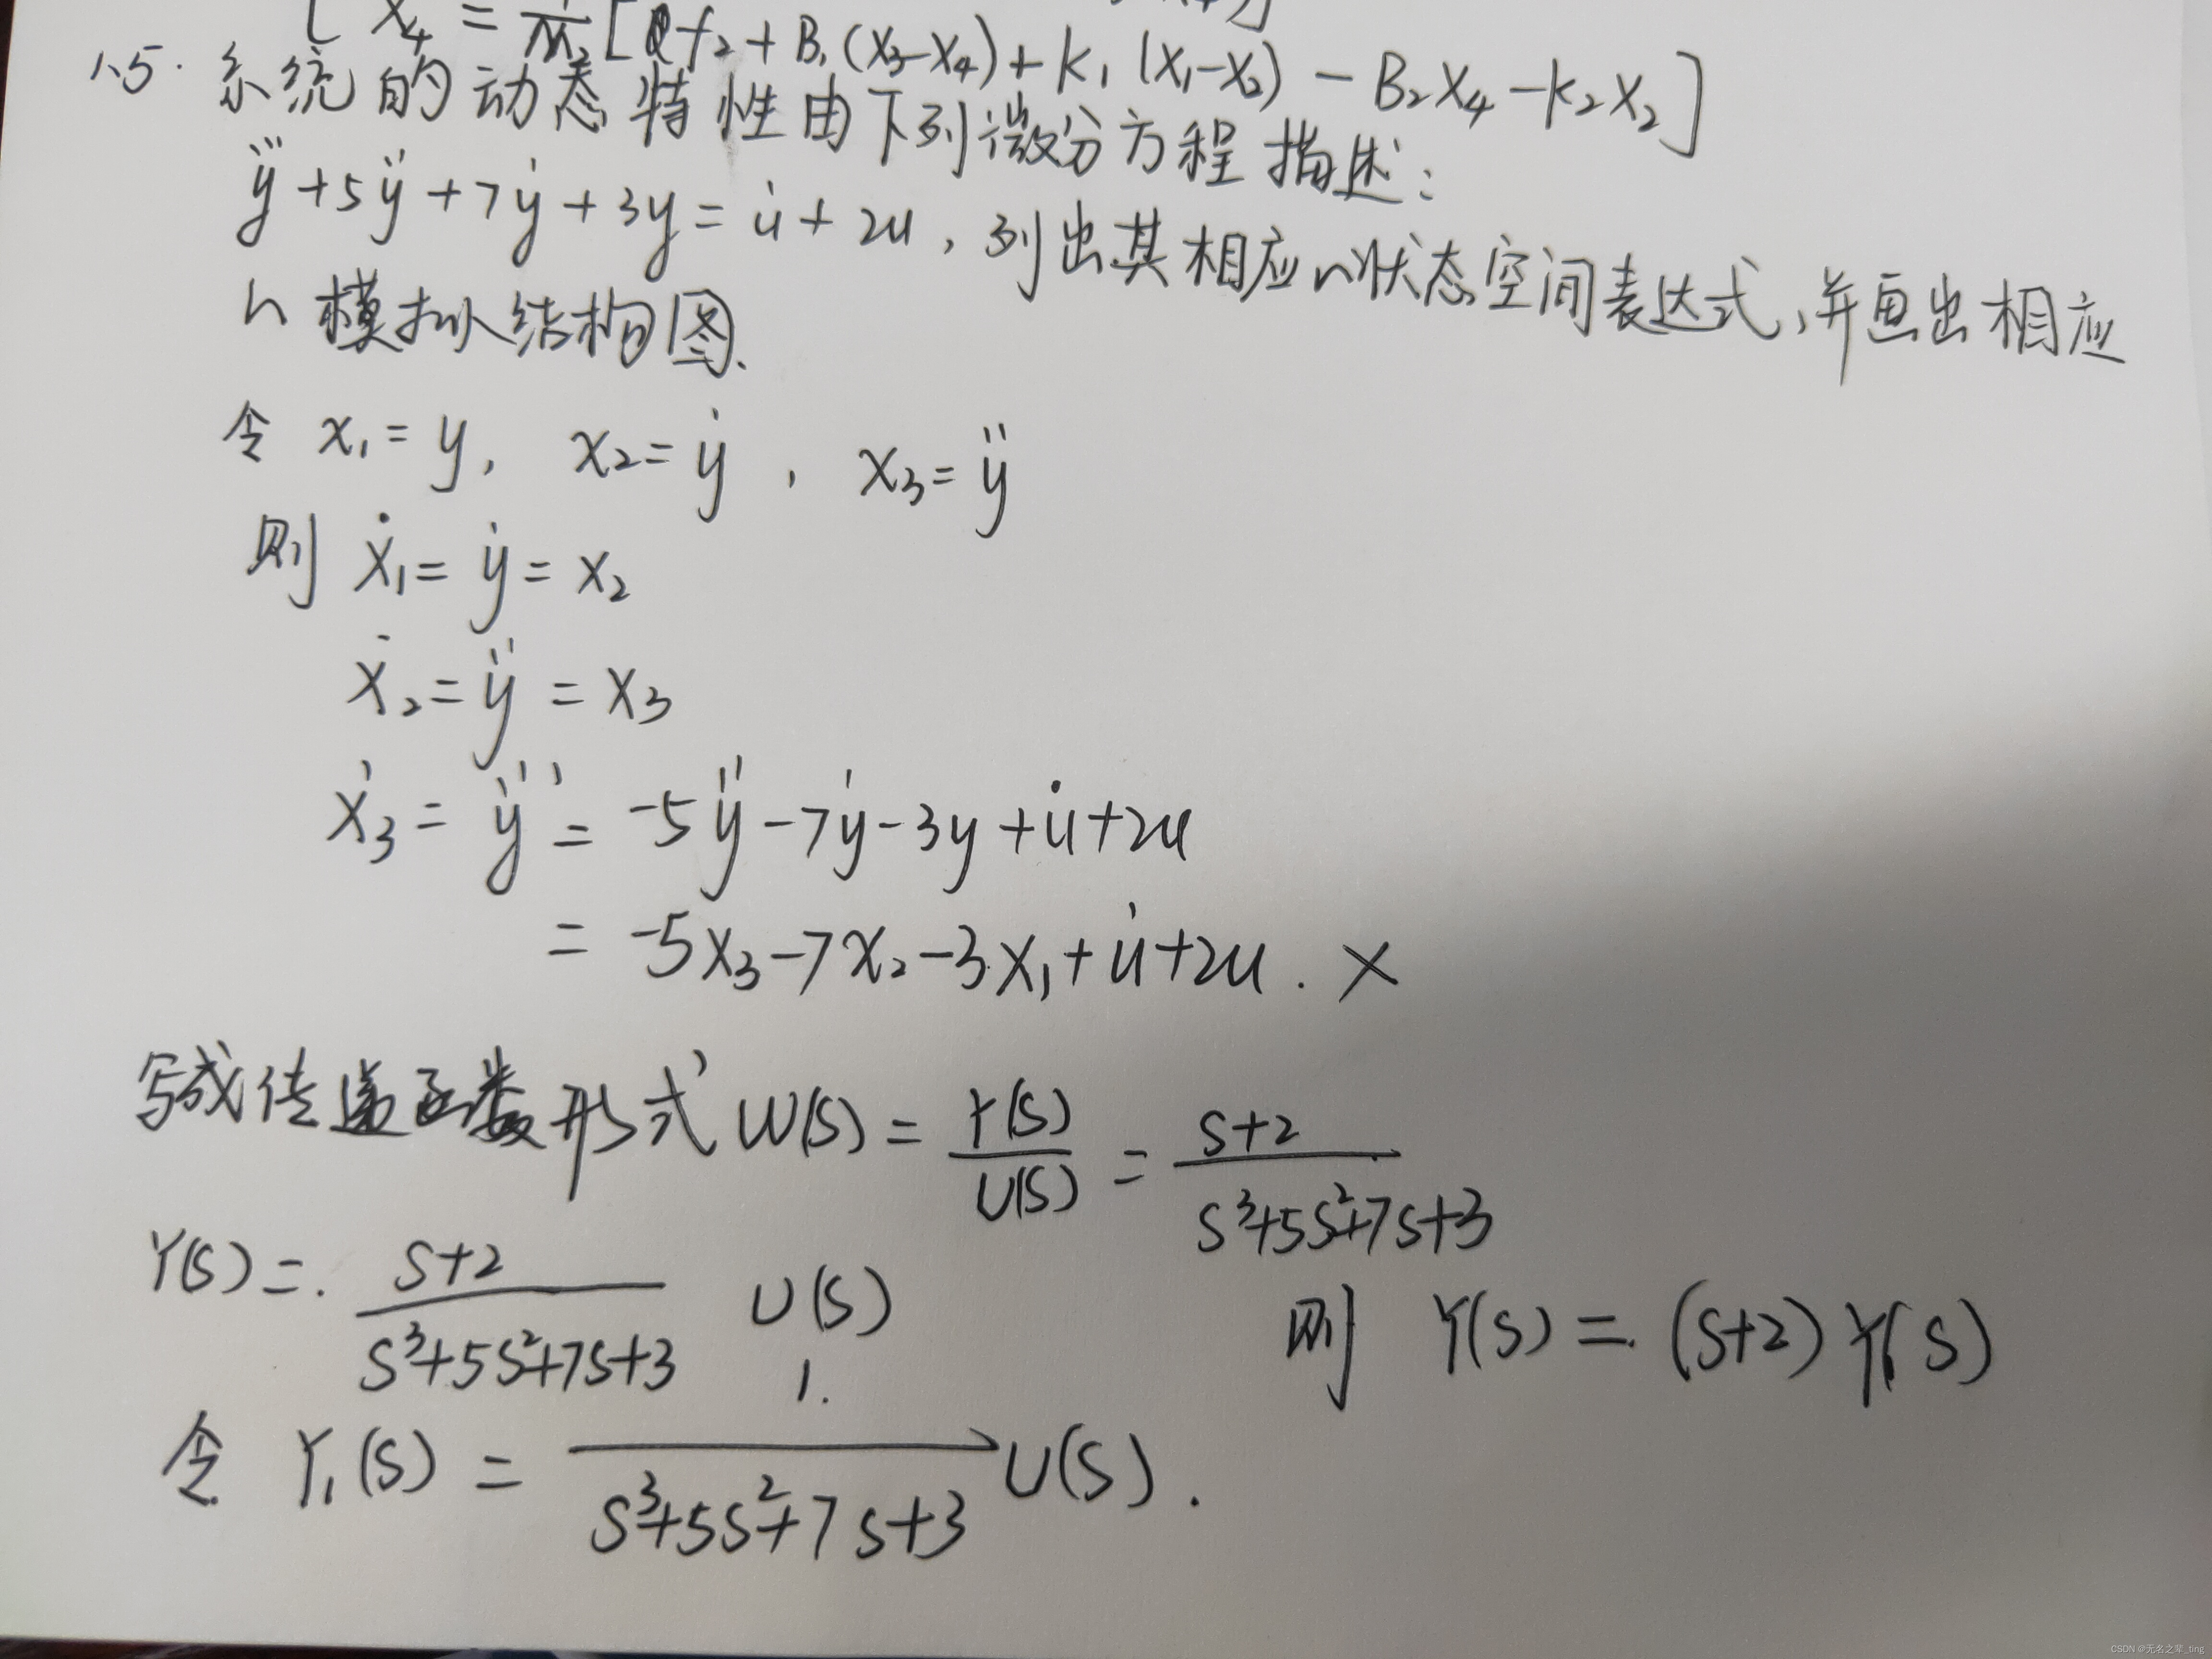 x₄ = [f₂ + B₁(x₃-x₄) + K₁(x₁-x₂) - B₂x₄ - K₂x₂]
1.5. 系统的动态特性由下列微分方程描述:
y⃛ + 5ÿ + 7ẏ + 3y = u̇ + 2u, 列出其相应的状态空间表达式,并画出相应
的模拟结构图.
令 x₁ = y, x₂ = ẏ, x₃ = ÿ
则 ẋ₁ = ẏ = x₂
ẋ₂ = ÿ = x₃
ẋ₃ = y⃛ = -5ÿ - 7ẏ - 3y + u̇ + 2u
= -5x₃ - 7x₂ - 3x₁ + u̇ + 2u. ×
写成传递函数形式 W(s) = Y(s)/U(s) = (s+2)/(s³+5s²+7s+3)
Y(s) = (s+2)/(s³+5s²+7s+3) U(s)
令 Y₁(s) = 1/(s³+5s²+7s+3) U(s).
则 Y(s) = (s+2) Y₁(s)
CSDN @无名之辈_ting